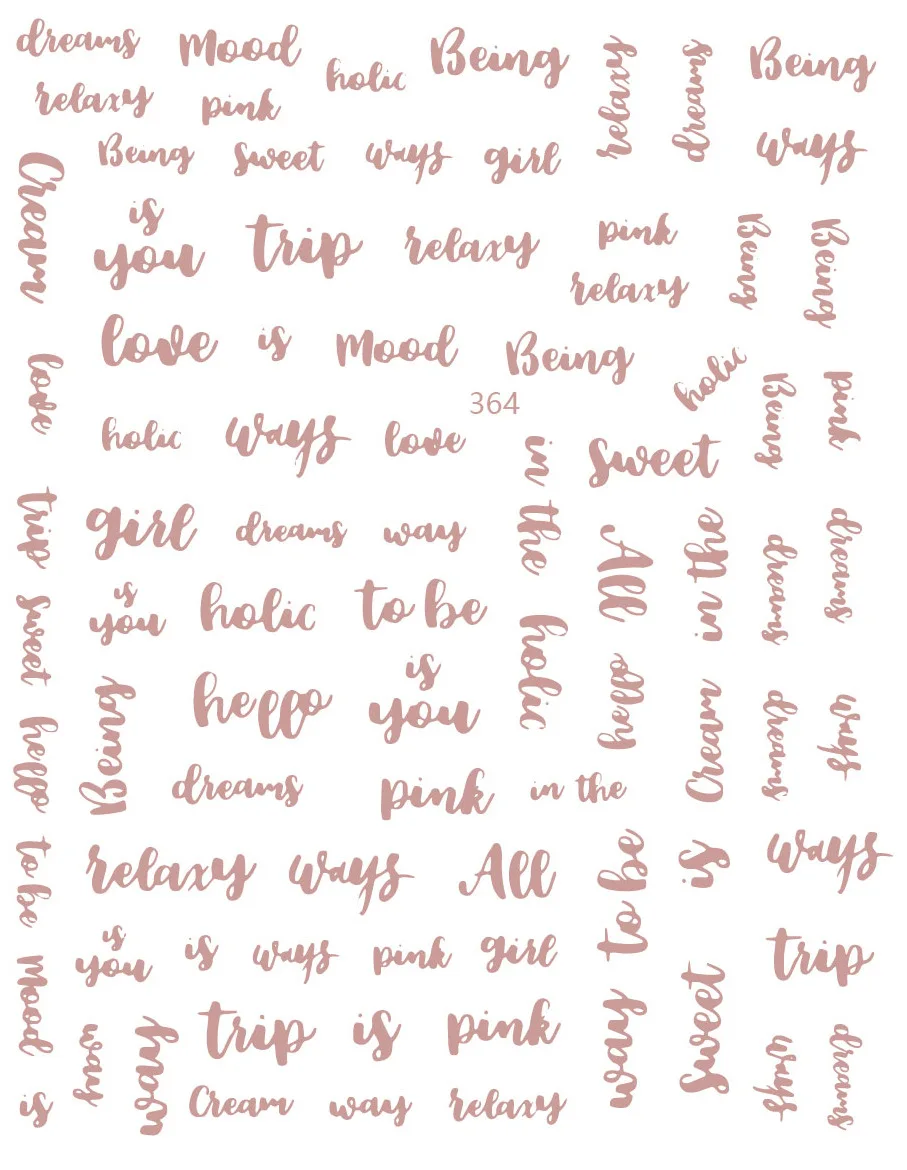 dreams Mood holic Being relaxy dreams Being
relaxy pink
Being sweet ways girl ways
Cream
is
you trip relaxy pink Being Being
relaxy
love is Mood Being holic
love Being pink
364
holic ways love in the sweet
trip girl dreams way All in the dreams dreams
is
you holic to be holic
sweet hello is
you hello Cream dreams ways
hello Being
dreams pink in the
to be relaxy ways All to be is ways
is
you is ways pink girl sweet trip
Mood way way trip is pink way ways dreams
is Cream way relaxy